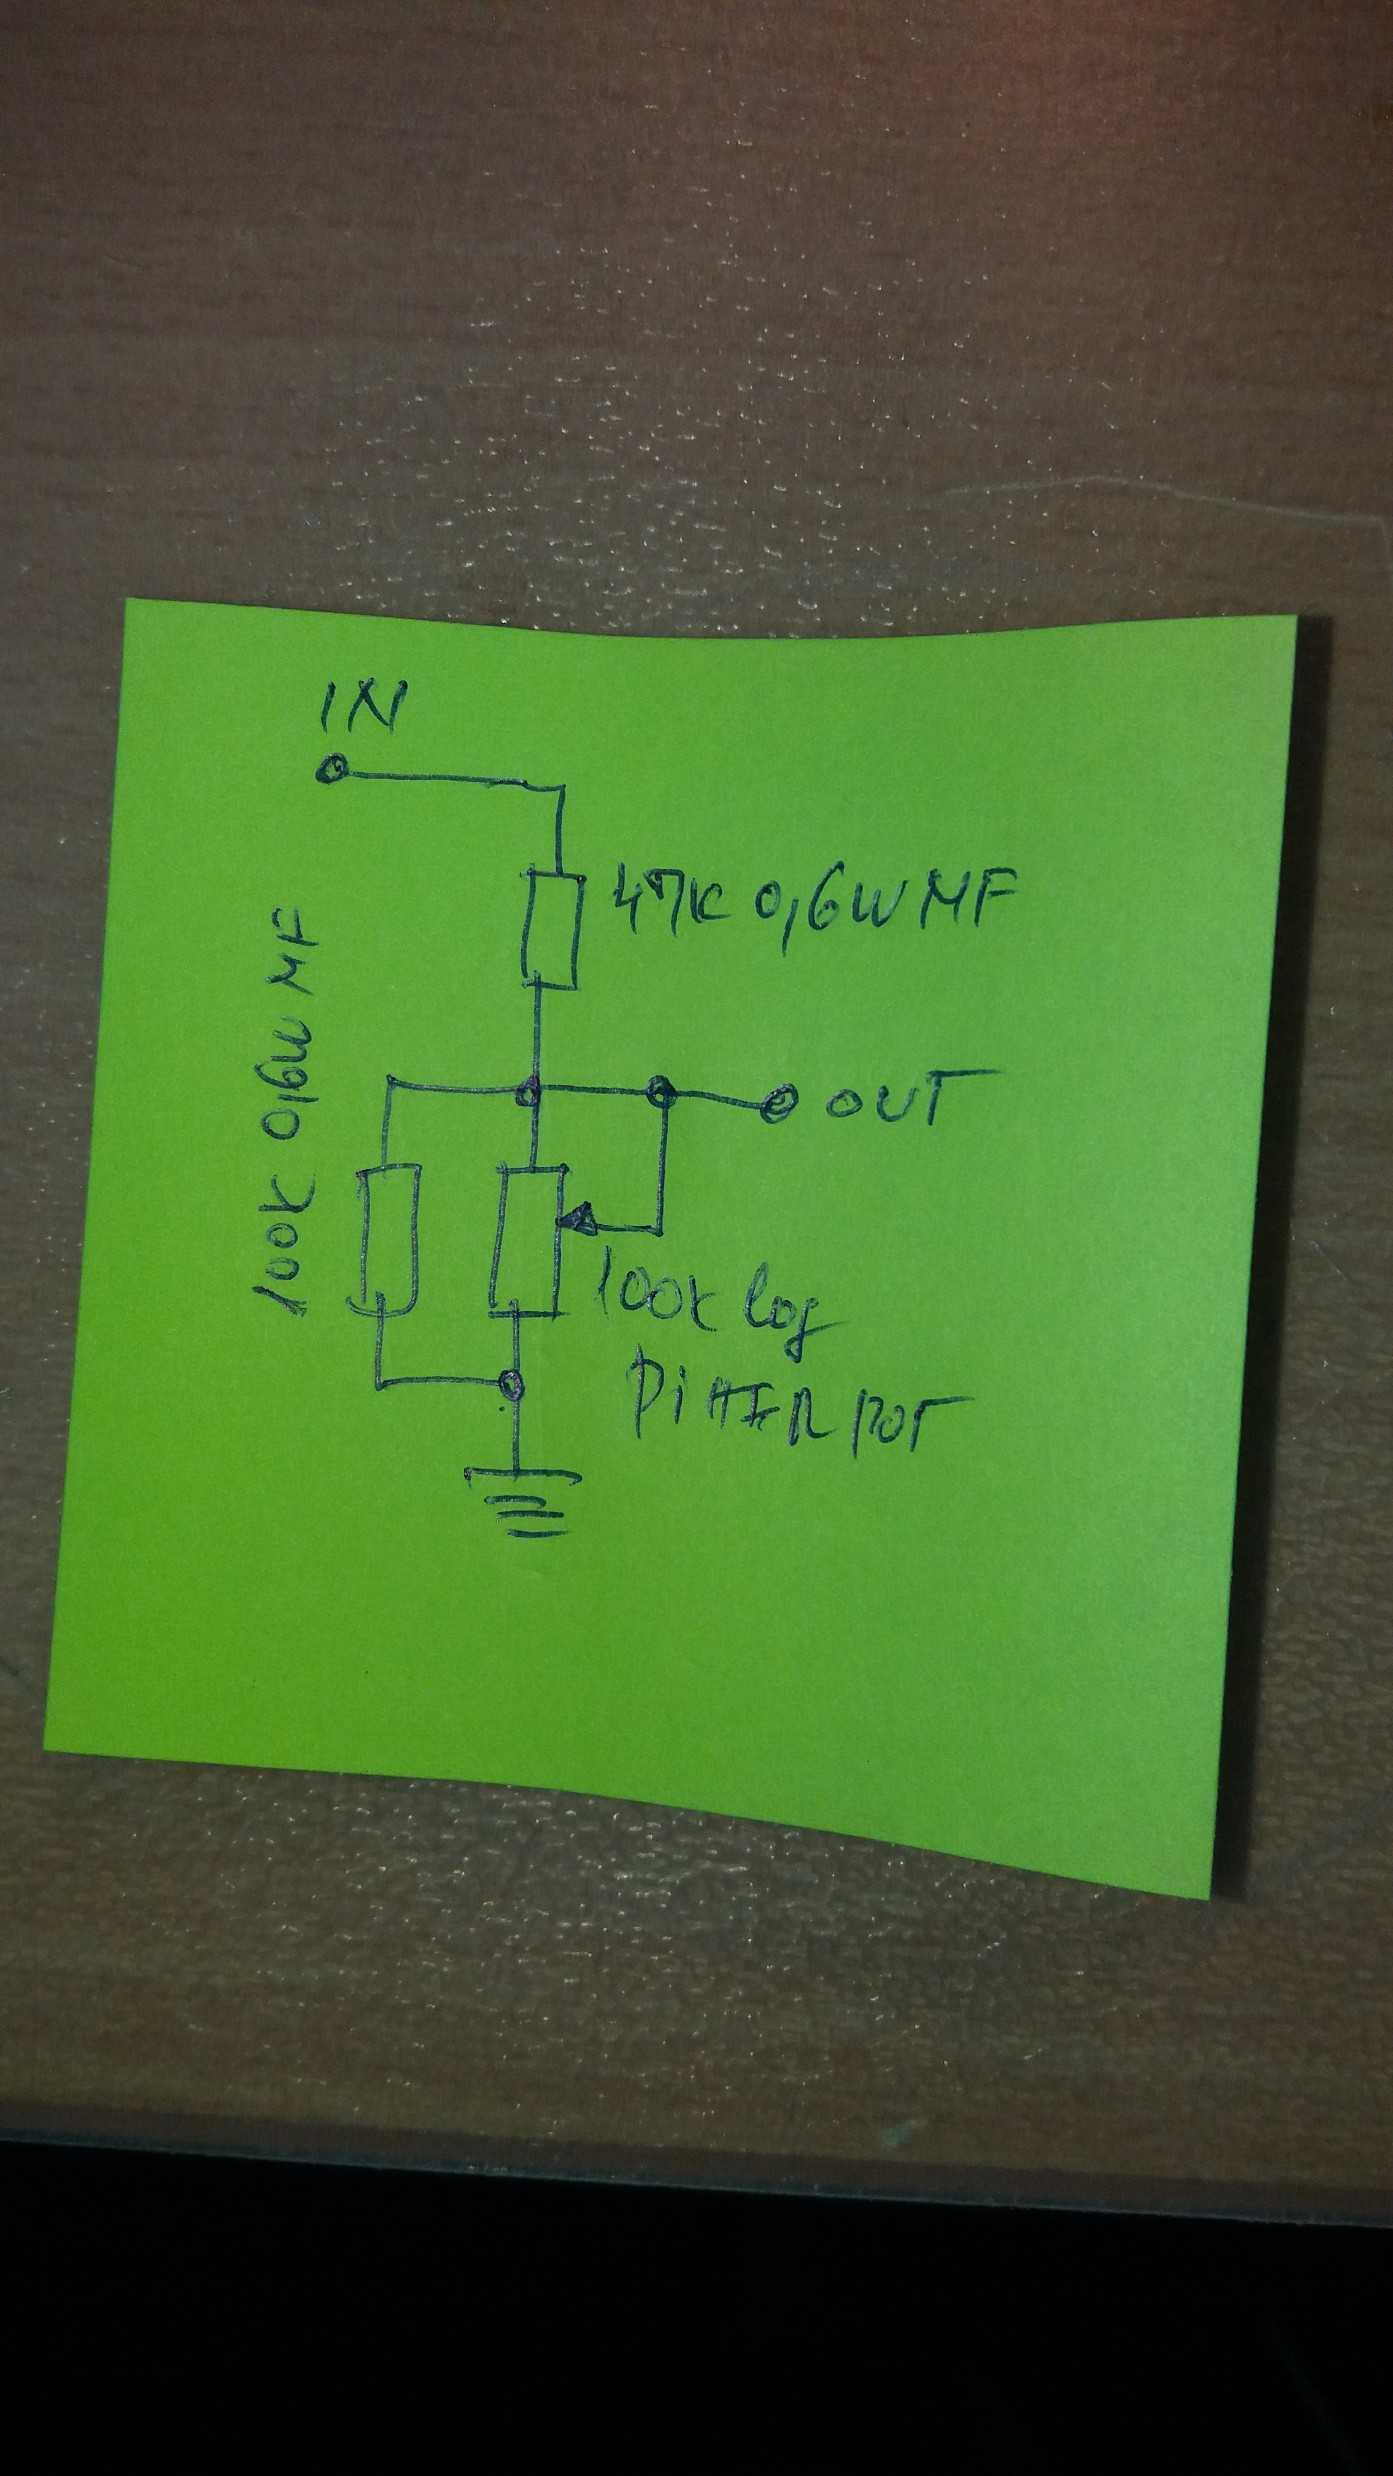 IN
47K 0,6W MF
100K 0,6W MF
OUT
100K log
PiHER POT